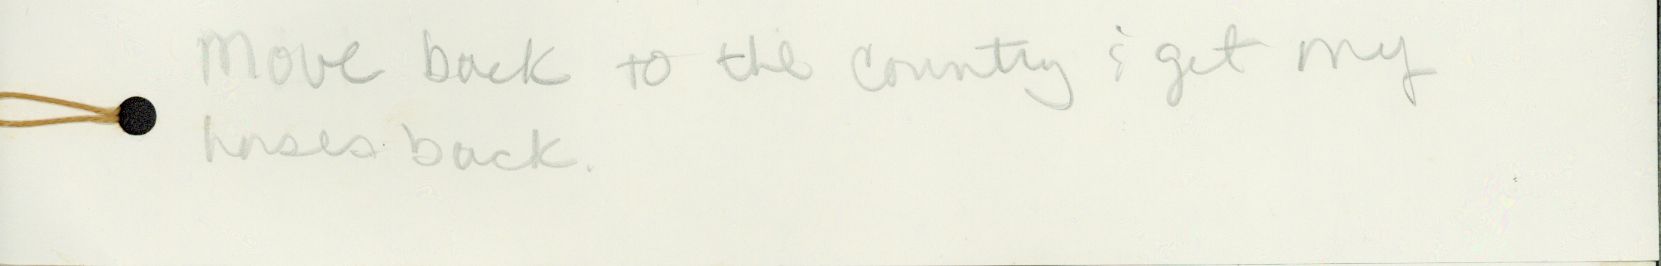 Move back to the country & get my
horses back.